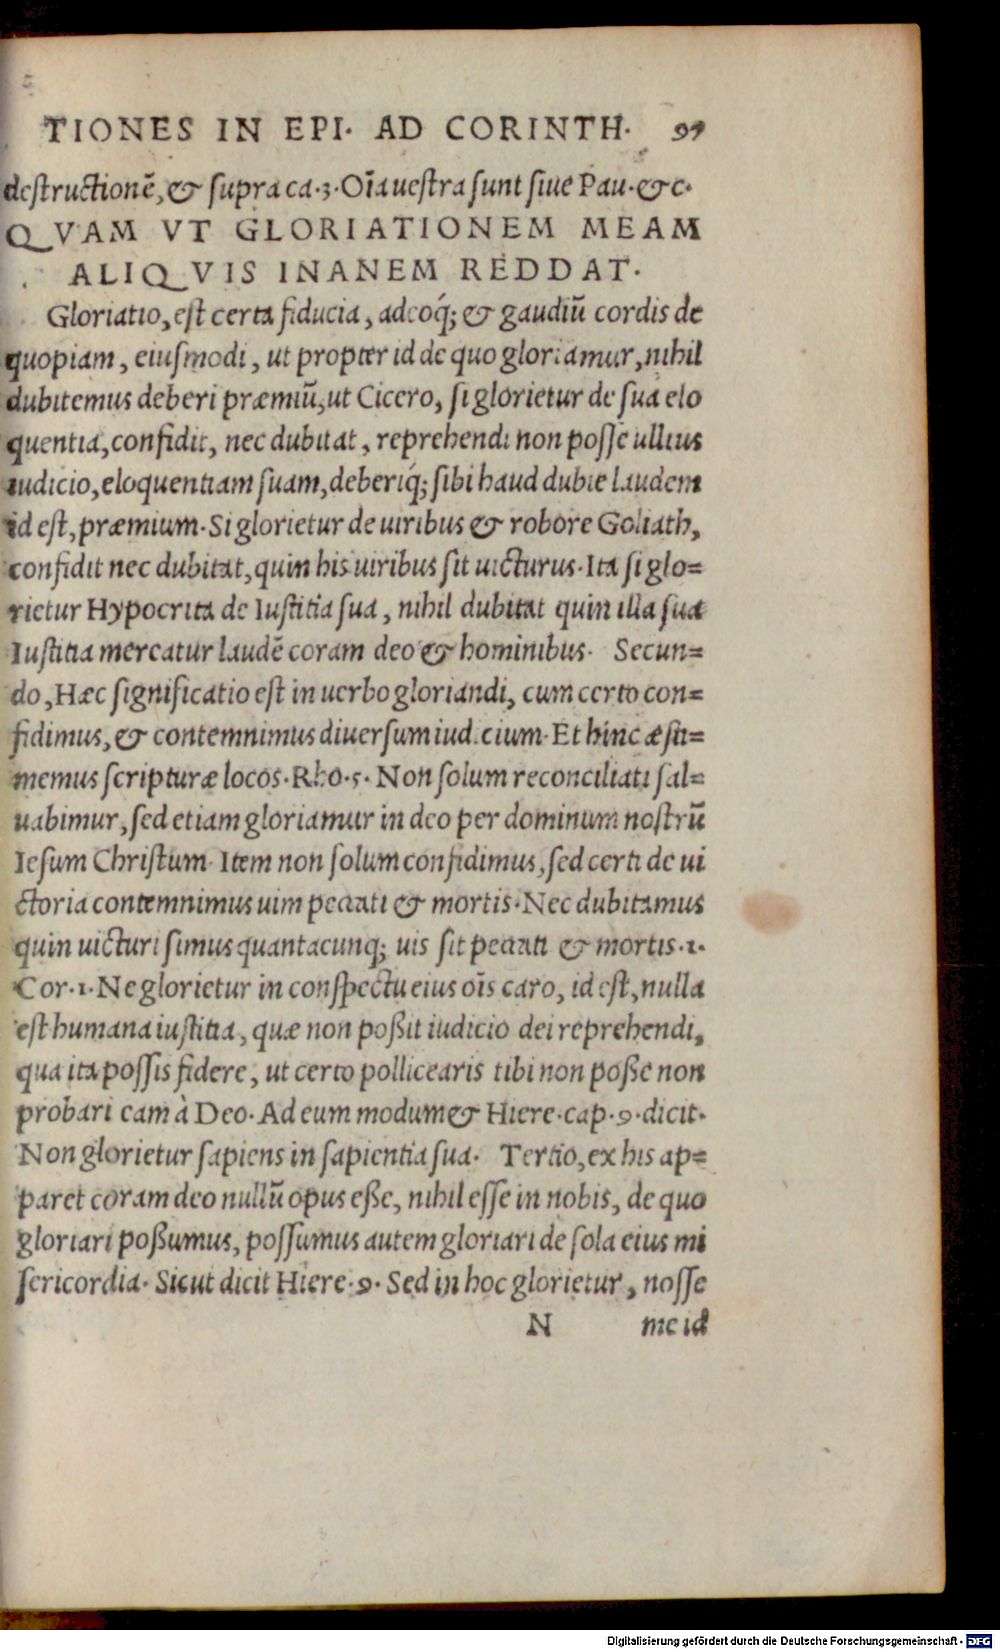 TIONES IN EPI. AD CORINTH. 97
destructionē, & supra ca.3. Oīa uestra sunt siue Pau. &c.
QVAM VT GLORIATIONEM MEAM
ALIQVIS INANEM REDDAT.
Gloriatio, est certa fiducia, adeoq́; & gaudiū cordis de
quopiam, eiusmodi, ut propter id de quo gloriamur, nihil
dubitemus deberi præmiū, ut Cicero, si glorietur de sua elo
quentia, confidit, nec dubitat, reprehendi non posse ullius
iudicio, eloquentiam suam, deberiq́; sibi haud dubie laudem
id est, præmium. Si glorietur de uiribus & robore Goliath,
confidit nec dubitat, quin his uiribus sit uicturus. Ita si glo=
rietur Hypocrita de Iustitia sua, nihil dubitat quin illa sua
Iustitia mercatur laudē coram deo & hominibus. Secun=
do, Hæc significatio est in uerbo gloriandi, cum certo con=
fidimus, & contemnimus diuersum iudicium. Et hinc æsti=
memus scripturæ locos. Rho.5. Non solum reconciliati sal=
uabimur, sed etiam gloriamur in deo per dominum nostrū
Iesum Christum. Item non solum confidimus, sed certi de ui
ctoria contemnimus uim peccati & mortis. Nec dubitamus
quin uicturi simus quantacunq; uis sit peccati & mortis. 1.
Cor.1. Ne glorietur in conspectu eius oīs caro, id est, nulla
est humana iustitia, quæ non poßit iudicio dei reprehendi,
qua ita possis fidere, ut certo pollicearis tibi non poße non
probari eam à Deo. Ad eum modum & Hiere. cap. 9. dicit.
Non glorietur sapiens in sapientia sua. Tertio, ex his ap=
paret coram deo nullū opus eße, nihil esse in nobis, de quo
gloriari poßumus, possumus autem gloriari de sola eius mi
sericordia. Sicut dicit Hiere.9. Sed in hoc glorietur, nosse
N me id
Digitalisierung gefördert durch die Deutsche Forschungsgemeinschaft - DFG